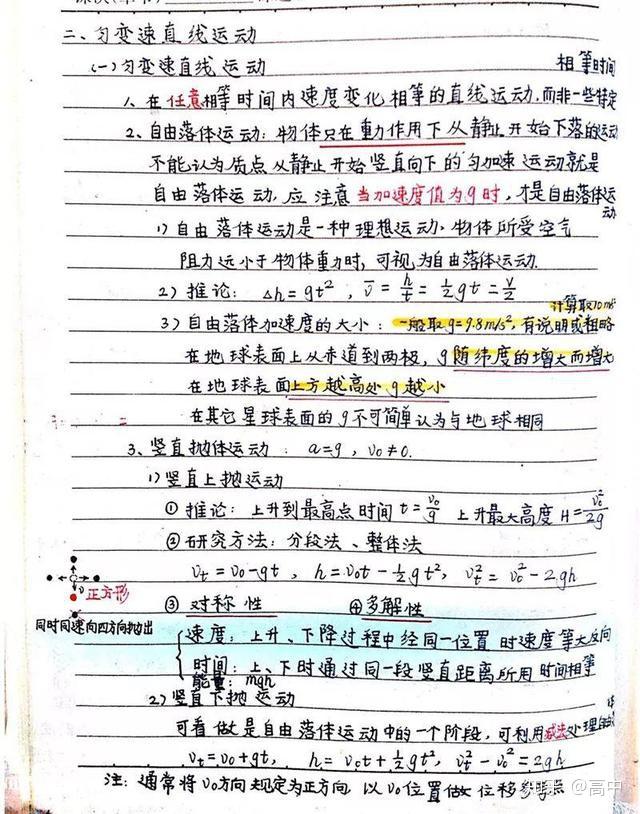 二、匀变速直线运动
(一)匀变速直线运动 相等时间
1、在任意相等时间内速度变化相等的直线运动,而非一些特定
2、自由落体运动:物体只在重力作用下从静止开始下落的运动
不能认为质点从静止开始竖直向下的匀加速运动就是
自由落体运动,应注意当加速度值为g时,才是自由落体运
动
1)自由落体运动是一种理想运动,物体所受空气
阻力远小于物体重力时,可视为自由落体运动.
2)推论:Δh=gt²,v̄=h/t=½gt=v/2
计算取10m/s²
3)自由落体加速度的大小:一般取g=9.8m/s²,有说明或粗略
在地球表面上从赤道到两极,g随纬度的增大而增大
在地球表面上方越高处g越小
在其它星球表面的g不可简单认为与地球相同
3、竖直抛体运动:a=g,v₀≠0.
1)竖直上抛运动
①推论:上升到最高点时间t=v₀/g 上升最大高度H=v₀²/2g
②研究方法:分段法、整体法
vt=v₀-gt,h=v₀t-½gt²,vt²=v₀²-2gh
正方形
③对称性 ④多解性
同时同速向四方向抛出
速度:上升、下降过程中经同一位置时速度等大反向
时间:上、下时通过同一段竖直距离所用时间相等
能量:mgh
2)竖直下抛运动
可看做是自由落体运动中的一个阶段,可利用减法处理
vt=v₀+gt,h=v₀t+½gt²,vt²-v₀²=2gh
注:通常将v₀方向规定为正方向 以v₀位置做位移参考点
知乎 @高中